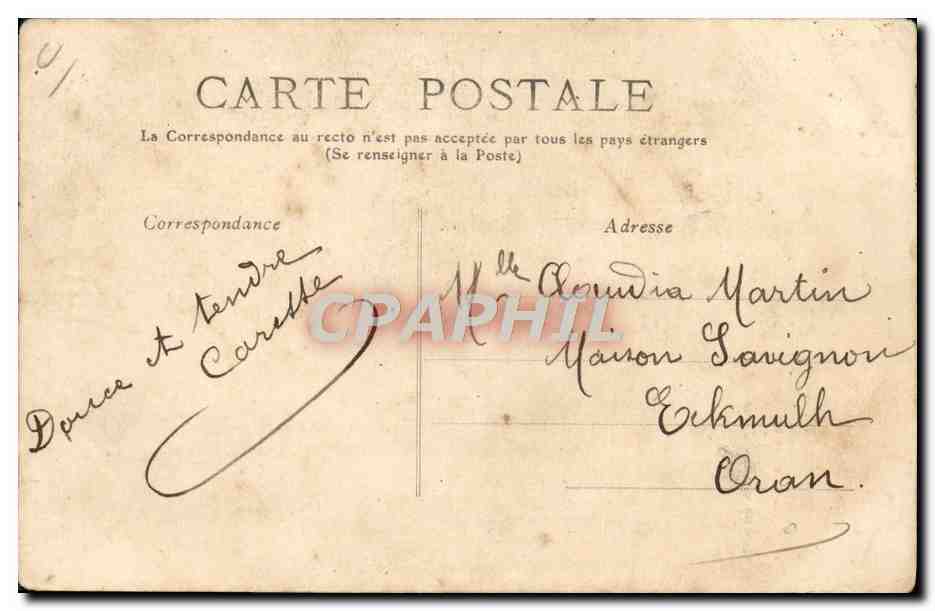 CARTE POSTALE
La Correspondance au recto n'est pas acceptée par tous les pays étrangers
(Se renseigner à la Poste)
Correspondance
Douce et tendre
Caresse
Adresse
Mlle Claudia Martin
Maison Savignon
Eckmulh
Oran.
CPAPHIL